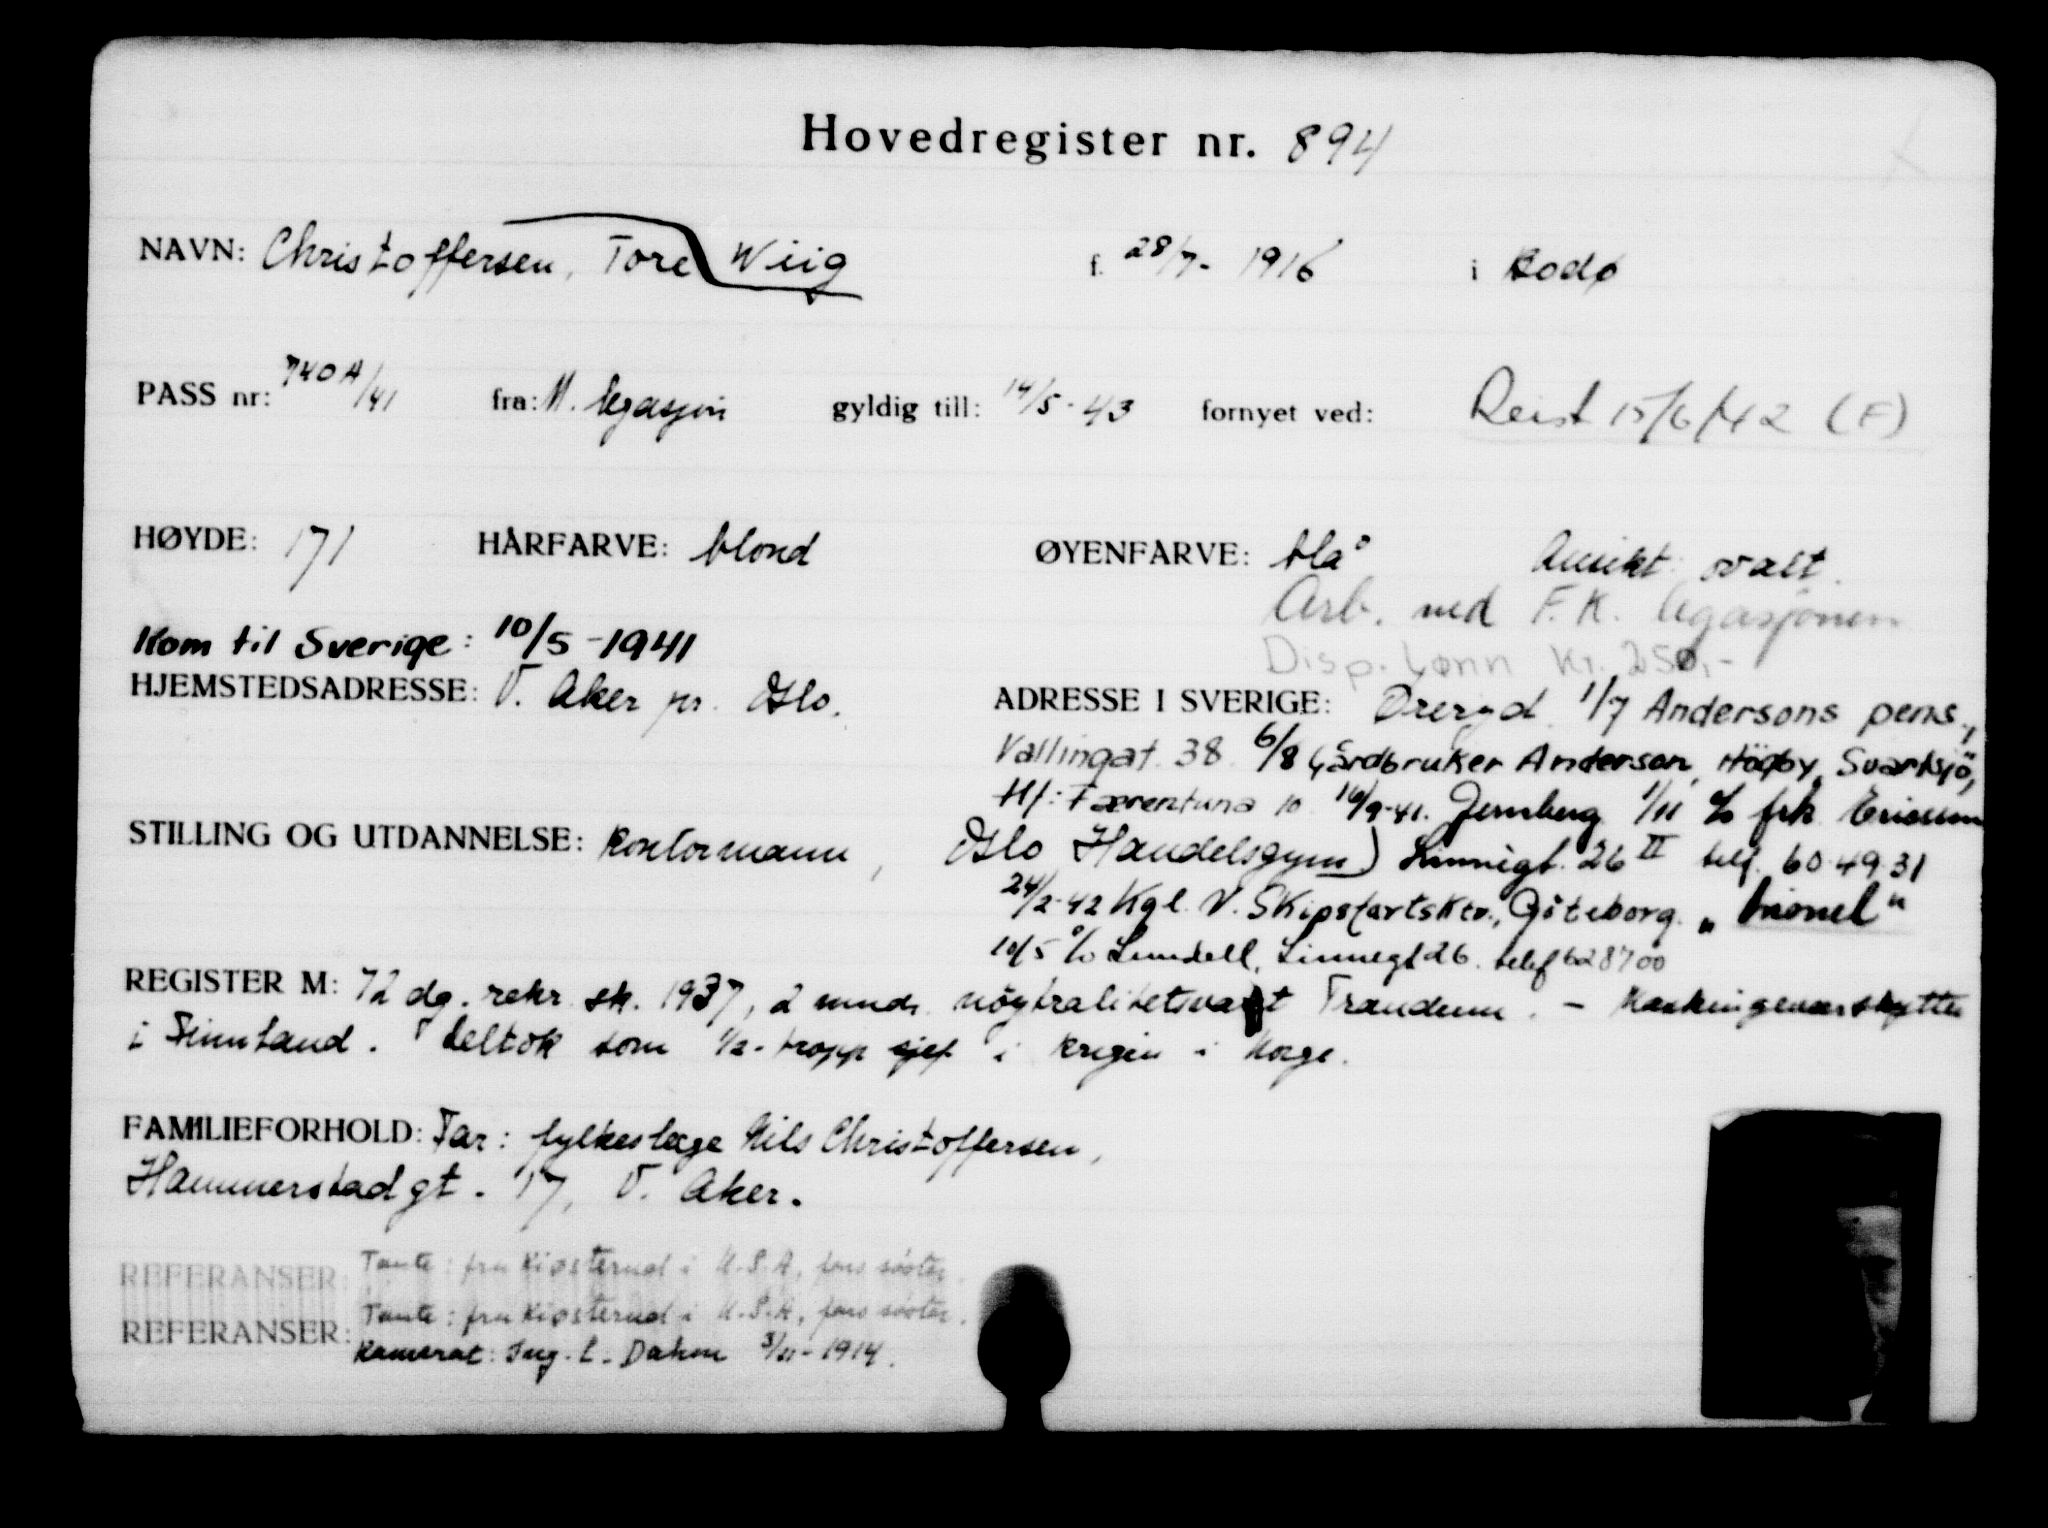 Hovedregister nr. 894
NAVN: Christoffersen, Tore Wiig f. 28/7- 1916 i Bodø
PASS nr: 740A/41 fra: N. legasjon gyldig till: 14/5-43 fornyet ved: Reist 15/6/42 (F)
HØYDE: 171 HÅRFARVE: blond ØYENFARVE: blå Ansikt: ovalt.
Arb. ved F.K. legasjonen
Kom til Sverige: 10/5-1941
Disp. lønn Kr. 250,-
HJEMSTEDSADRESSE: V. Aker pr. Oslo.
ADRESSE I SVERIGE: Øreryd 1/7 Andersons pens.,
Vallingat. 38. 6/8 Gårdbruker Anderson, Högby, Svartsjö,
tlf: Færentuna 10 16/9-41. Jernberg 1/11 c/o frk. Ericsson
STILLING OG UTDANNELSE: Kontormann, Oslo Handelsgym) Linnégt. 26 II telf. 60.49.31
24/2-42 Kgl. N. Skipsfartsktr., Göteborg. „Lionel"
10/5 c/o Lundell, Linnegt 26. telef 628700
REGISTER M: 72 dg. rekr. sk. 1937, 2 mndr. nøytralitetsvakt Trandum. - Maskingeværskytter
i Finnland. Deltok som 1/2-troppsjef i krigen i Norge.
FAMILIEFORHOLD: Far: fylkeslege Nils Christoffersen,
Hammerstadgt. 17, V. Aker.
REFERANSER: Tante: fru Kiøsterud i U.S.A, fars søster.
Tante: fru Kiøsterud i U.S.A, fars søster.
REFERANSER:
Kamerat: Ing. L. Dahm 3/11-1914.